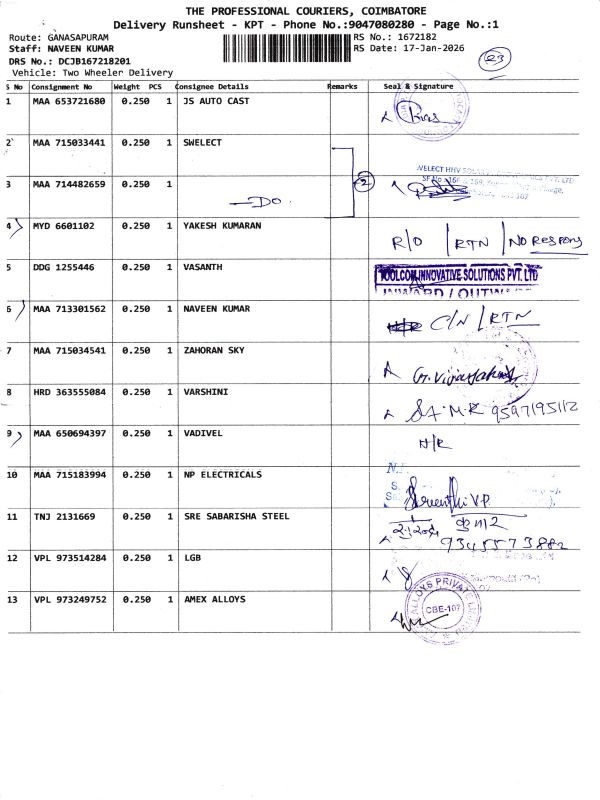 THE PROFESSIONAL COURIERS, COIMBATORE
Delivery Runsheet - KPT - Phone No.:9047080280 - Page No.:1
Route: GANASAPURAM
RS No.: 1672182
Staff: NAVEEN KUMAR
RS Date: 17-Jan-2026
23
DRS No.: DCJB167218201
Vehicle: Two Wheeler Delivery
S No Consignment No Weight PCS Consignee Details Remarks Seal & Signature
1 MAA 653721680 0.250 1 JS AUTO CAST
2 MAA 715033441 0.250 1 SWELECT
3 MAA 714482659 0.250 1 —DO. 2
4 MYD 6601102 0.250 1 YAKESH KUMARAN R/O / RTN / NO Respons
5 DDG 1255446 0.250 1 VASANTH TOOLCOM INNOVATIVE SOLUTIONS PVT. LTD
6 MAA 713301562 0.250 1 NAVEEN KUMAR C/N / RTN
7 MAA 715034541 0.250 1 ZAHORAN SKY
8 HRD 363555084 0.250 1 VARSHINI 9597195112
9 MAA 650694397 0.250 1 VADIVEL N/R
10 MAA 715183994 0.250 1 NP ELECTRICALS
11 TNJ 2131669 0.250 1 SRE SABARISHA STEEL
9345573882
12 VPL 973514284 0.250 1 LGB
13 VPL 973249752 0.250 1 AMEX ALLOYS
ALLOYS PRIVATE
CBE-107